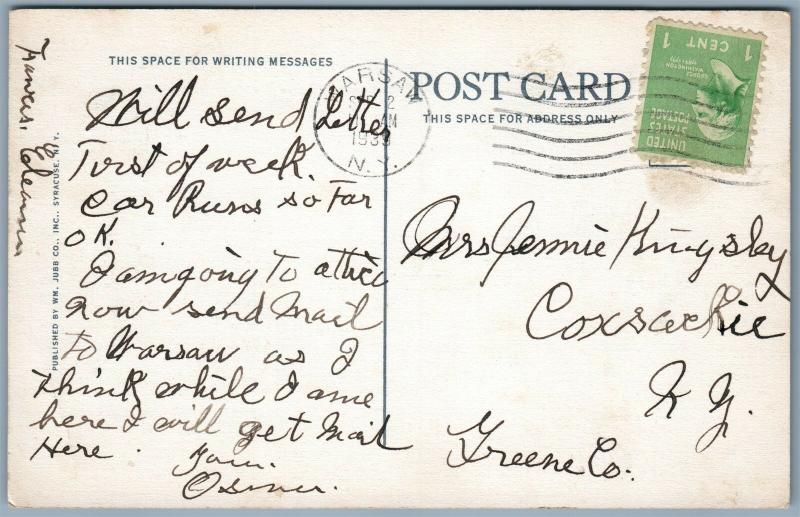 THIS SPACE FOR WRITING MESSAGES
Will send Letter
First of week.
Car Runs so Far
OK.
I am going to attica
now send Mail
to Warsaw as I
think while I ame
here I will get Mail
Here.
PUBLISHED BY WM. JUBB CO., INC., SYRACUSE, N.Y.
WARSAW
2
AM
1939
N.Y.
POST CARD
THIS SPACE FOR ADDRESS ONLY
1 CENT 1
GEORGE
WASHINGTON
UNITED
STATES
POSTAGE
Mrs Jennie Kingsley
Coxsackie
N.Y.
Greene Co.